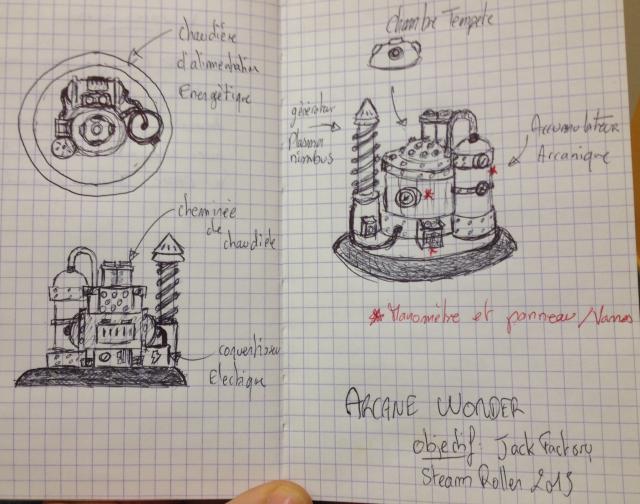 chaudière
d'alimentation
Energétique
cheminée
de
chaudière
convertisseur
Electrique
chambre Tempete
générateur
Plasma
nimbus
Accumulateur
Arcanique
* Manomètre et panneau /
ARCANE WONDER
objectif: Jack Factory
Steam Roller 2013